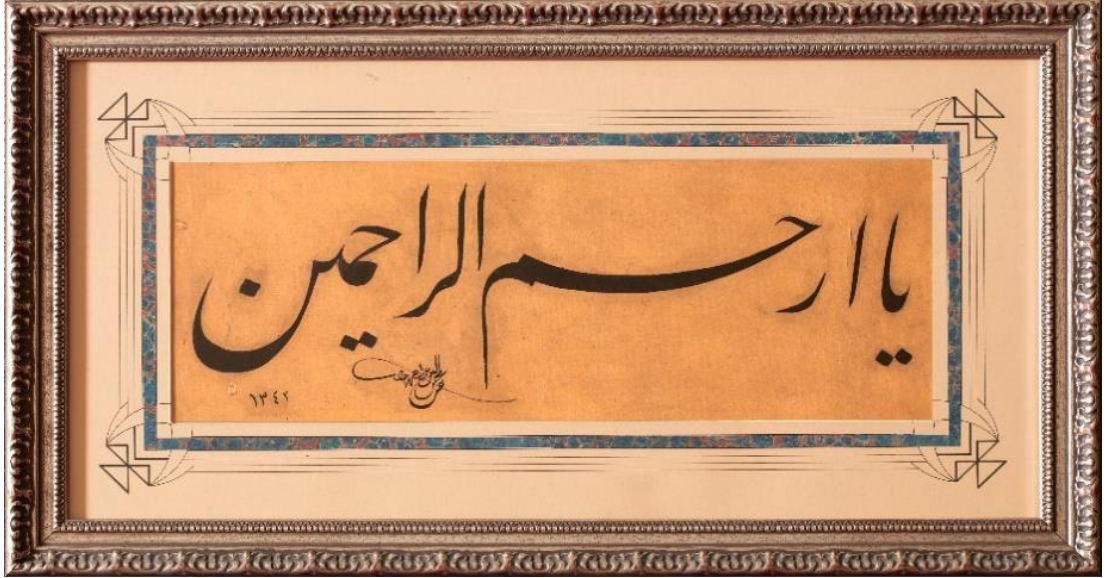 يا ارحم الراحمين
١٣٤٢